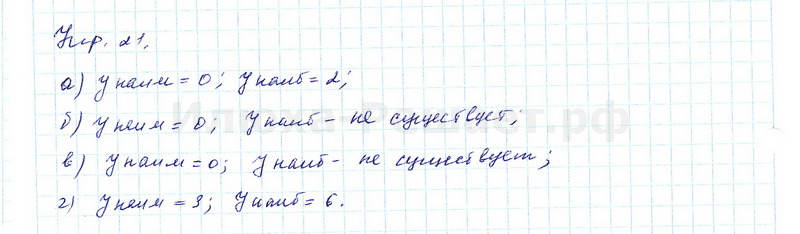 Упр. 21.
а) y наим = 0; y наиб = 2;
б) y наим = 0; y наиб - не существует;
в) y наим = 0; y наиб - не существует;
г) y наим = 3; y наиб = 6.